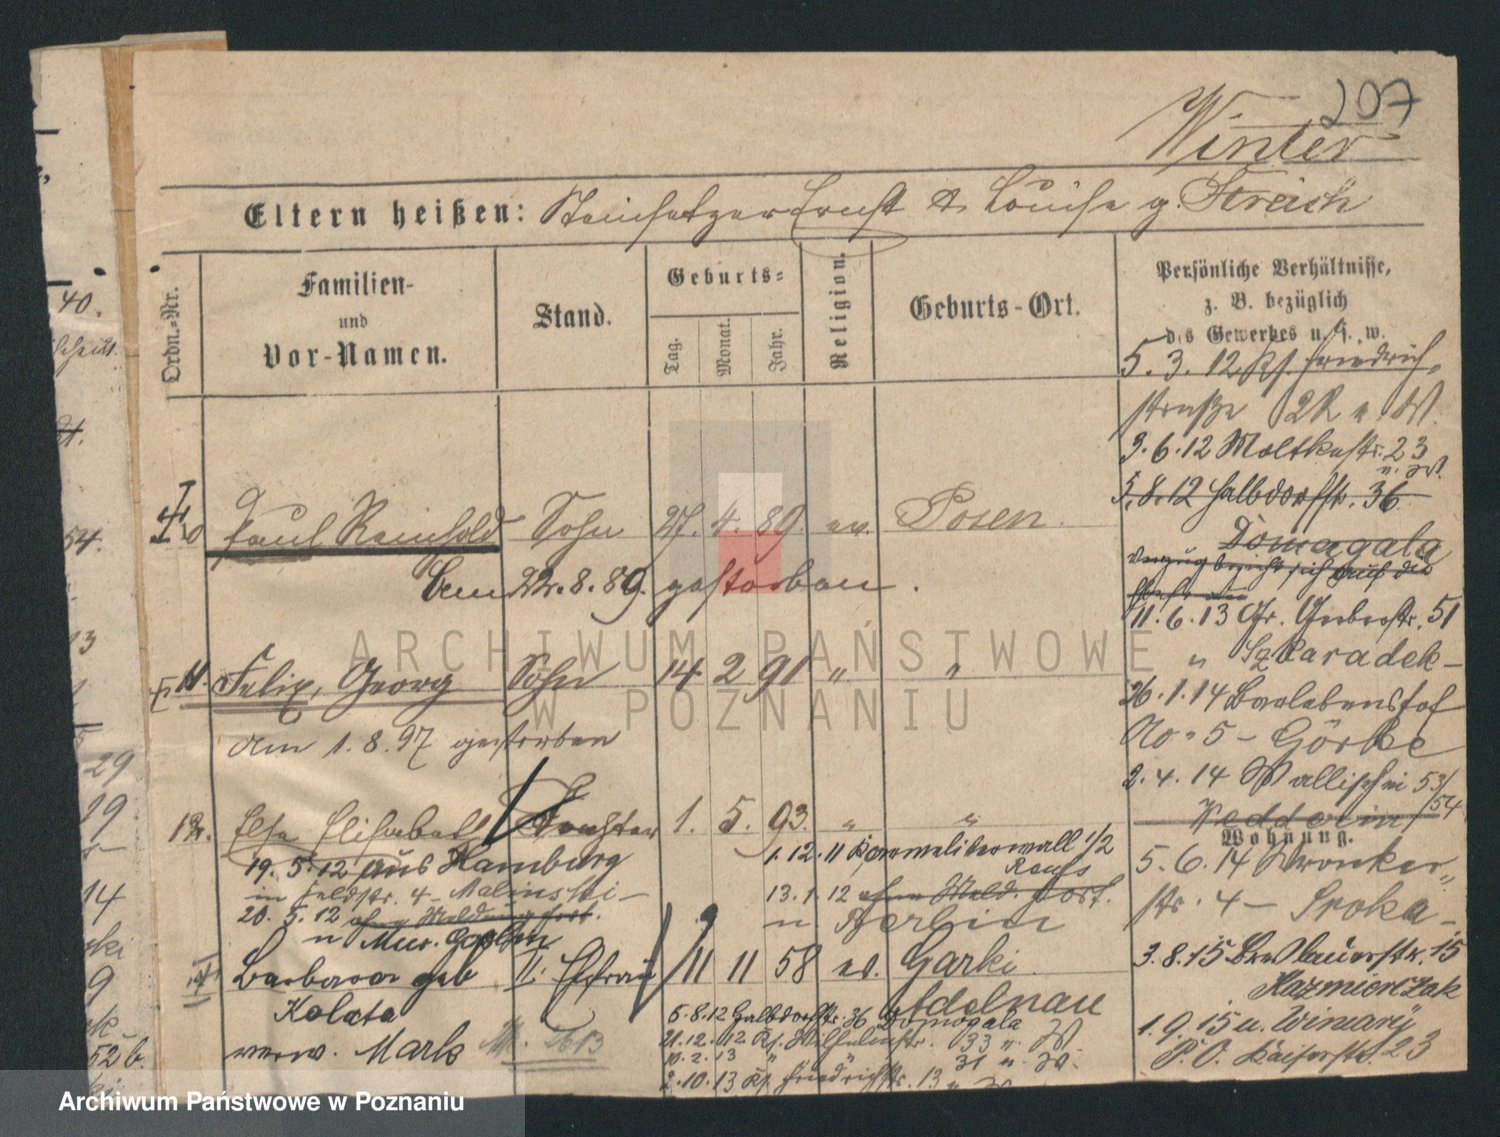 207
Winter
Eltern heißen: Steinsetzer Ernst & Louise g. Streich
Ordn.-Nr.
Familien-
und
Vor-Namen.
Stand.
Geburts-
Tag.
Monat.
Jahr.
Religion.
Geburts-Ort.
Persönliche Verhältnisse,
z. B. bezüglich
des Gewerbes u. s. w.
5. 3. 12 Ks. Friedrich-
straße
3. 6. 12 Moltkestr. 23
5. 8. 12 Halbdorfstr. 36
Domagala
11. 6. 13 Gr. Gerberstr. 51
" Szkaradek
26. 1. 14 Barlebenshof
No 5 - Görke
2. 4. 14 Wallischei 53/54
Wohnung.
5. 6. 14 Wronker-
str. 4 - Sroka
3. 8. 15 Breslauerstr. 15
Kazmierczak
1. 9. 15 u. Winiary
P. O. Kaiserstr. 23
10 Paul Reinhold Sohn 27. 4. 89. ev. Posen
Am 22. 8. 89. gestorben.
11. Felix, Georg Sohn 14. 2 91 " "
am 1. 8. 97 gestorben
12. Else Elisabeth Tochter 1. 5. 93. " "
19. 5. 12 aus Hamburg
in Feldstr. 4 - Malinski
20. 5. 12 ohne Meldung fort.
1. 12. 11 Karmeliterwall 1/2
13. 1. 12 ohne Meld. fort.
n Berlin
Barbara geb II. Ehefrau 11 11 58 ev. Garki
Kolata Adelnau
verw. Mark
5. 8. 12 Halbdorfstr. 36 Domagala
21. 12. 12 Ks. Wilhelmstr. 33 n. W.
10. 2. 13 " " 31 n. W.
2. 10. 13 Ks. Friedrichstr. 13 n W
40.
54.
13
29
19
14
9
52 b.
ARCHIWUM PAŃSTWOWE
W POZNANIU
Archiwum Państwowe w Poznaniu